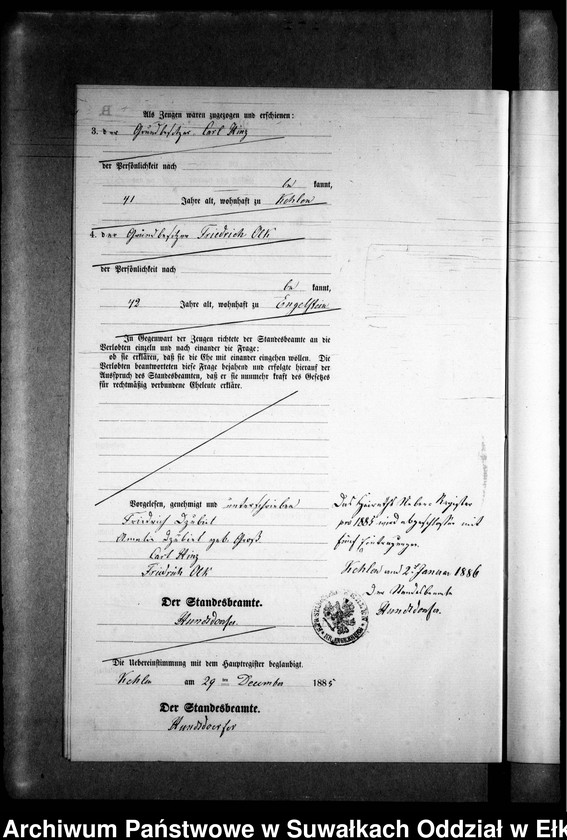 Als Zeugen waren zugezogen und erschienen:
3. der Grundbesitzer Carl Hinz
der Persönlichkeit nach
be kannt,
41 Jahre alt, wohnhaft zu Kehlen
4. der Grundbesitzer Friedrich Olk
der Persönlichkeit nach
be kannt,
42 Jahre alt, wohnhaft zu Engelstein
In Gegenwart der Zeugen richtete der Standesbeamte an die
Verlobten einzeln und nach einander die Frage:
ob sie erklären, daß sie die Ehe mit einander eingehen wollen. Die
Verlobten beantworteten diese Frage bejahend und erfolgte hierauf der
Ausspruch des Standesbeamten, daß er sie nunmehr kraft des Gesetzes
für rechtmäßig verbundene Eheleute erkläre.
Vorgelesen, genehmigt und unterschrieben
Friedrich Dzubiel
Amalie Dzubiel geb. Groß
Carl Hinz
Friedrich Olk
Der Standesbeamte.
Hundsdoerfer
Die Uebereinstimmung mit dem Hauptregister beglaubigt.
Kehlen am 29 ten December 1885
Der Standesbeamte.
Hundsdoerfer
Das Heiraths Neben Register
pro 1885 wird abgeschlossen mit
fünf Eintragungen.
Kehlen am 2. Januar 1886
Der Standesbeamte
Hundsdoerfer
Archiwum Państwowe w Suwałkach Oddział w Ełk